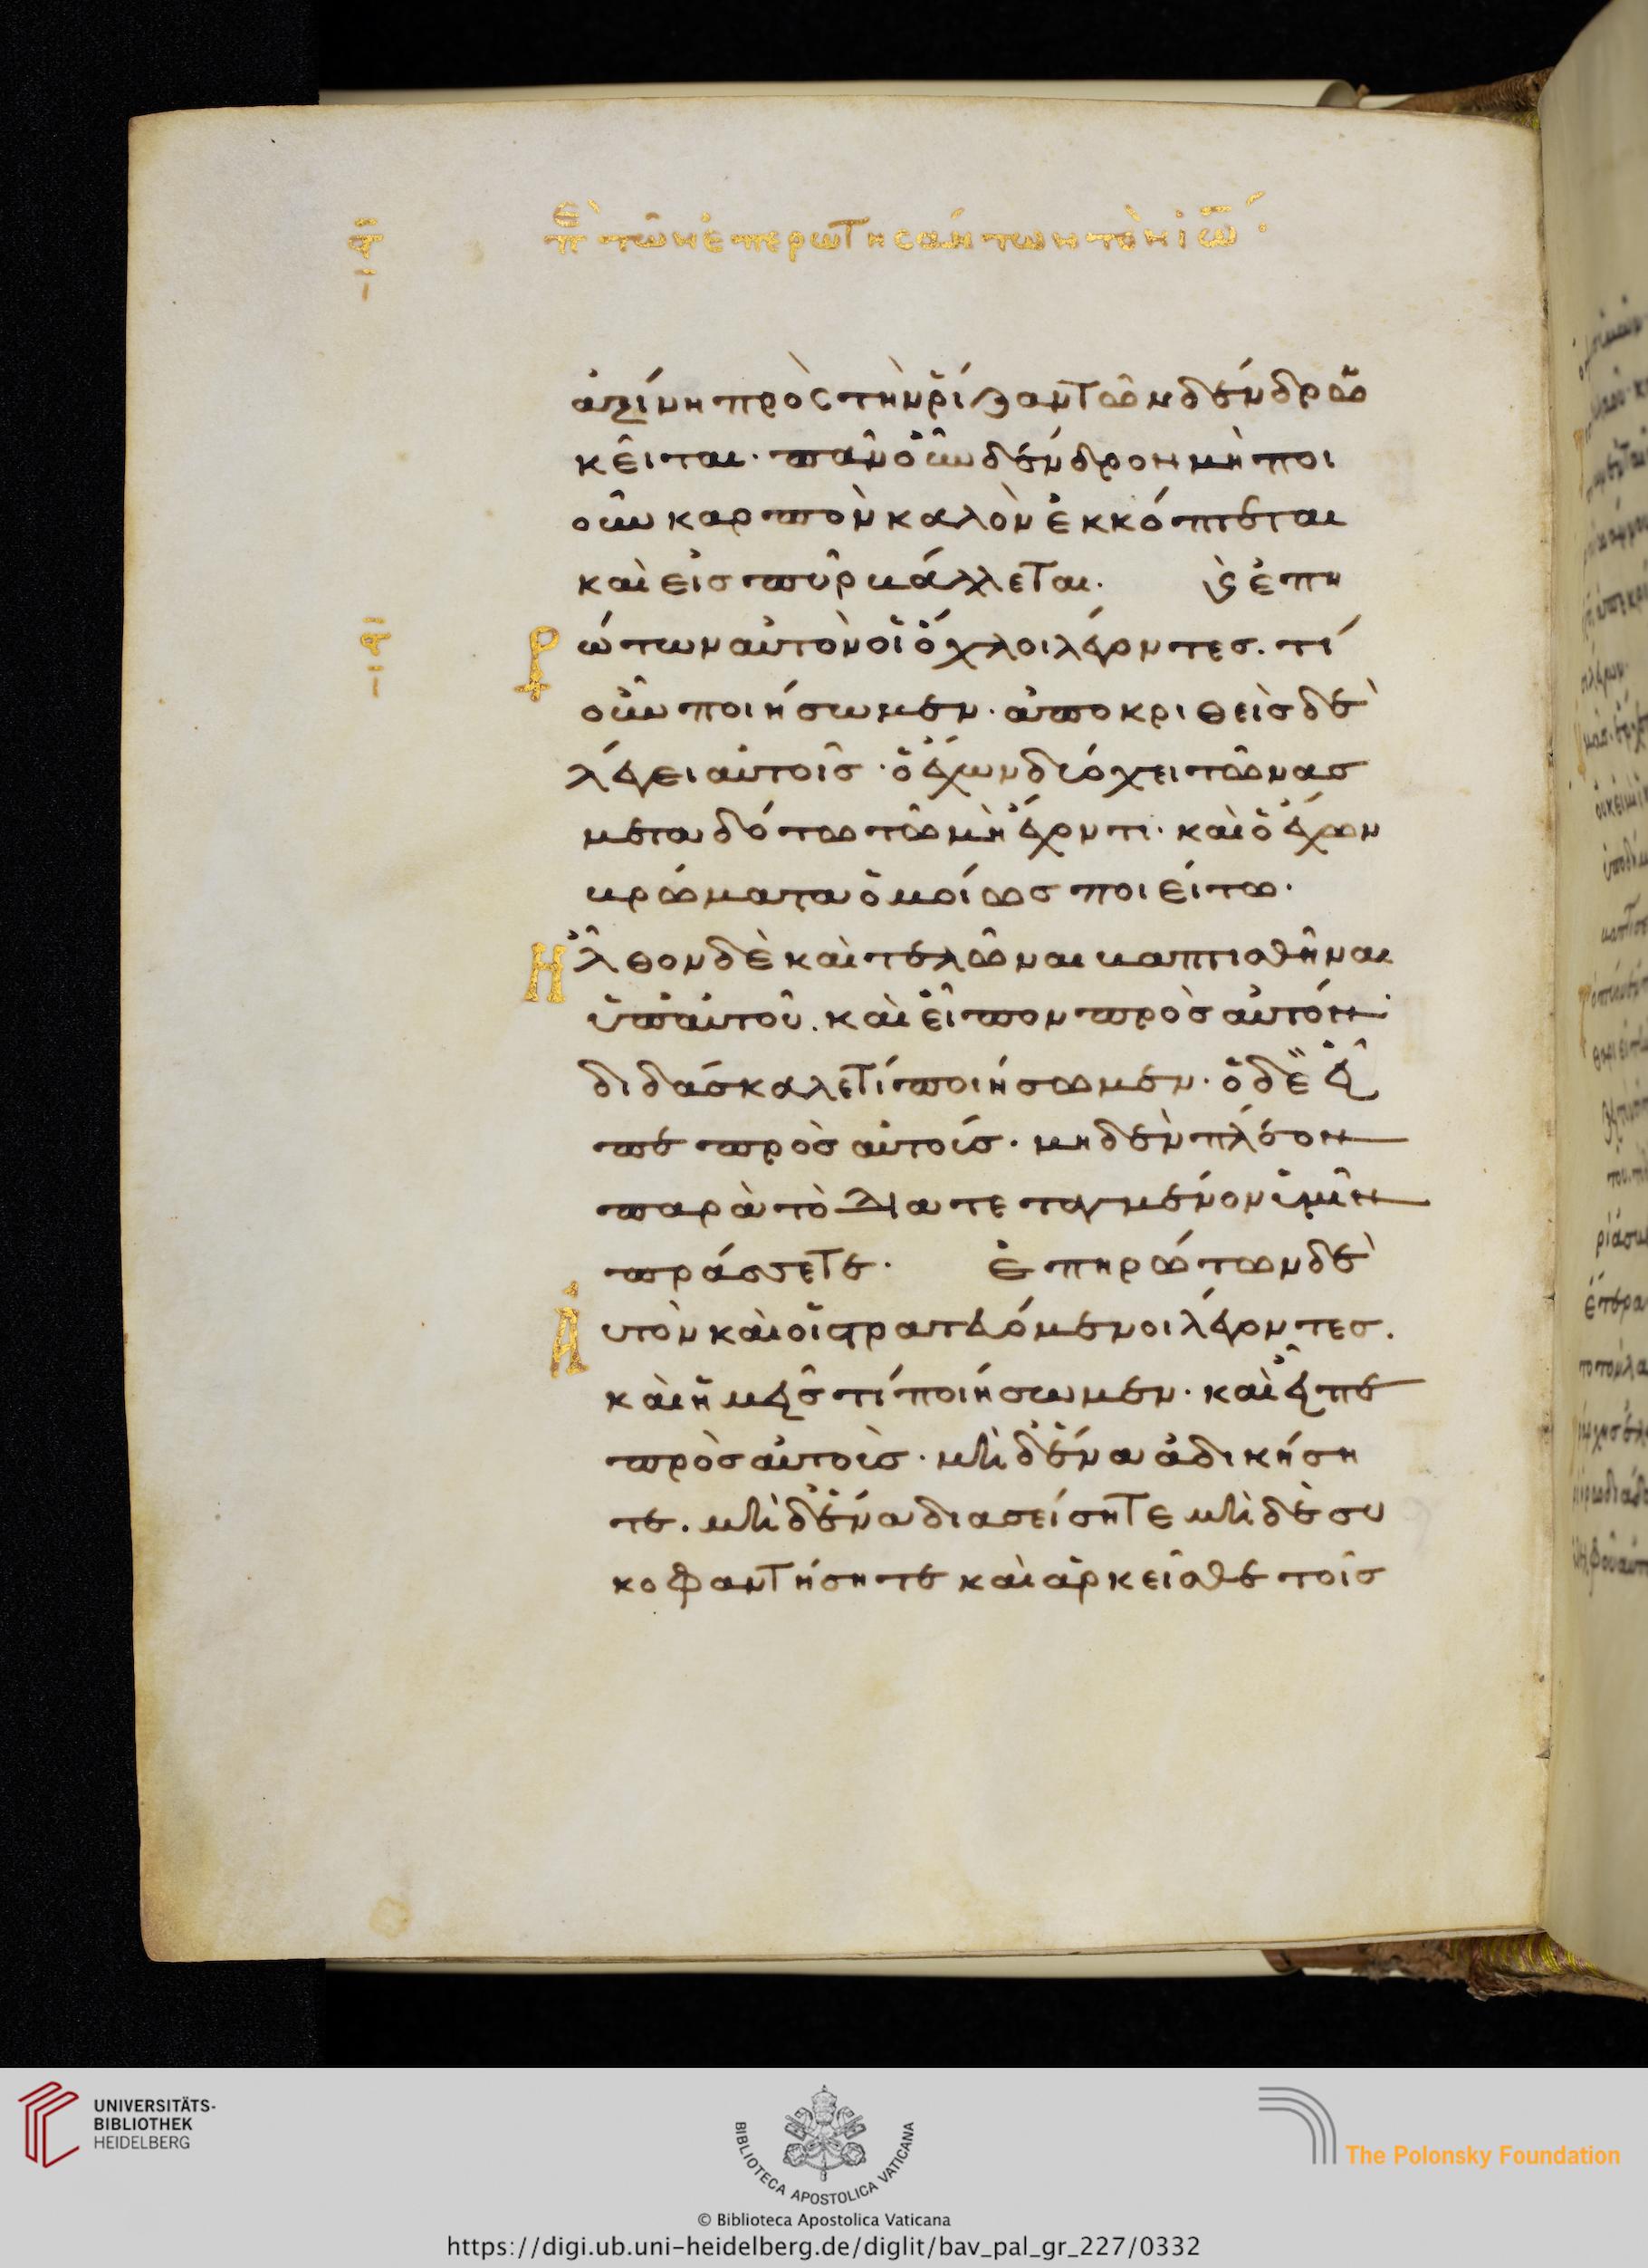 θ πε τῶν ἐπερωτησάντων τὸν ἰω
ἀξίνη πρὸς τὴν ῥίζαν τῶν δένδρων
κεῖται· πᾶν οὖν δένδρον μὴ ποι
οῦν καρπὸν καλὸν ἐκκόπτεται
καὶ εἰς πῦρ βάλλεται. ϗ ἐπη
ρώτων αὐτὸν οἱ ὄχλοι λέγοντες. τί
οὖν ποιήσωμεν· ἀποκριθεὶς δὲ
λέγει αὐτοῖς· ὁ ἔχων δύο χειτῶνας
μεταδότω τῷ μὴ ἔχοντι· καὶ ὁ ἔχων
βρώματα ὁμοίως ποιείτω·
Ἦλθον δὲ καὶ τελῶναι βαπτισθῆναι
ὑπ' αὐτοῦ. καὶ εἶπον πρὸς αὐτόν·
διδάσκαλε τί ποιήσωμεν· ὁ δὲ εἶ
πε πρὸς αὐτούς· μηδὲν πλέον
παρὰ τὸ διατεταγμένον ὑμῖν
πράσσετε· ἐπηρώτων δὲ
Ἀυτὸν καὶ οἱ στρατευόμενοι λέγοντες.
καὶ ἡμεῖς τί ποιήσωμεν· καὶ εἶπε
πρὸς αὐτοὺς· μὴδένα ἀδικήση
τε. μὴδένα διασείσητε μὴδὲ συ
κοφαντήσητε καὶ ἀρκεῖσθε τοῖς
UNIVERSITÄTS-
BIBLIOTHEK
HEIDELBERG
BIBLIOTECA APOSTOLICA VATICANA
The Polonsky Foundation
© Biblioteca Apostolica Vaticana
https://digi.ub.uni-heidelberg.de/diglit/bav_pal_gr_227/0332